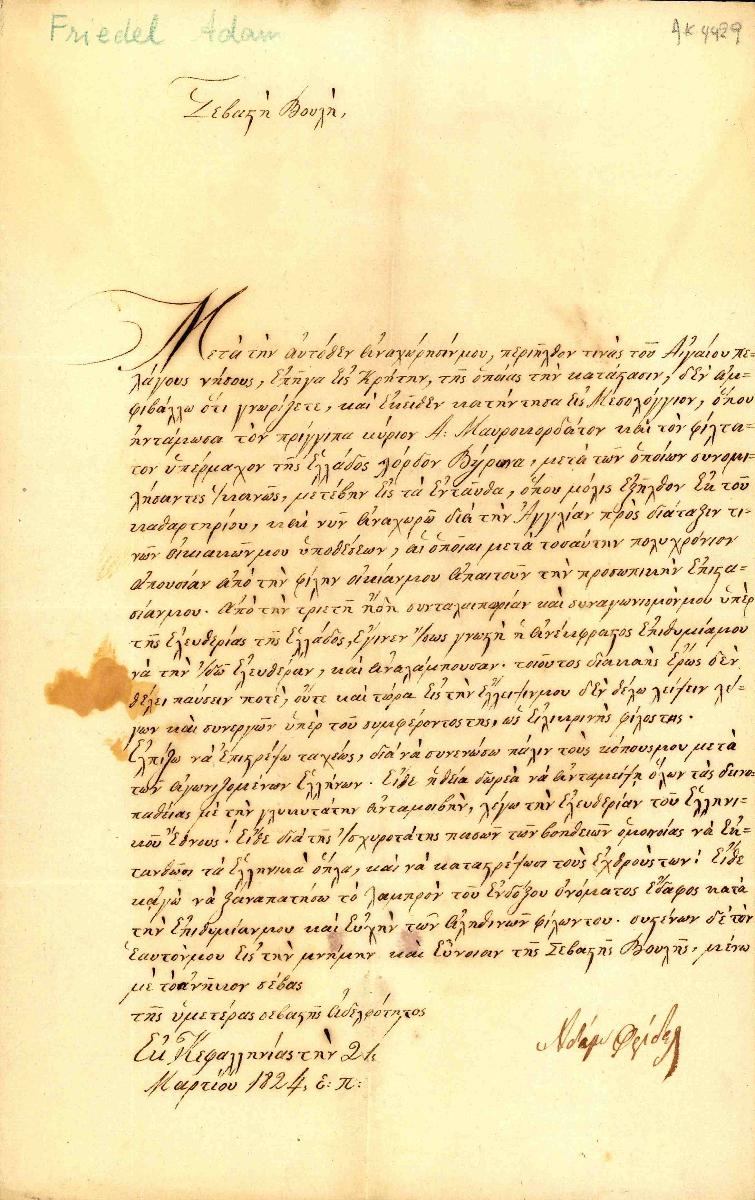 Friedel Adam
AK 4429
Σεβαστὴ Βουλὴ,
Μετὰ τὴν αὐτόθεν ἀναχώρησίν μου, περιῆλθον τινὰς τοῦ Αἰγαίου πε-
λάγους νήσους, ἐπῆγα εἰς Κρήτην, τῆς ὁποίας τὴν κατάστασιν, δὲν ἀμ-
φιβάλλω ὅτι γνωρίζετε, καὶ ἐκεῖθεν κατήντησα εἰς Μεσολόγγιον, ὅπου
ἠντάμωσα τὸν πρίγγιπα κύριον Α: Μαυροκορδάτον καὶ τὸν φίλτα-
τον ὑπέρμαχον τῆς Ἑλλάδος λόρδον Βύρωνα, μετὰ τῶν ὁποίων συνομι-
λήσαντες ἱκανῶς, μετέβην εἰς τὰ ἐνταῦθα, ὅπου μόλις ἐξῆλθον ἐκ τοῦ
καθαρτηρίου, καὶ νῦν ἀναχωρῶ διὰ τὴν Ἀγγλίαν πρὸς διάταξιν τι-
νῶν οἰκιακῶν μου ὑποθέσεων, αἱ ὁποῖαι μετὰ τοσαύτην πολυχρόνιον
ἀπουσίαν ἀπὸ τὴν φίλην οἰκίαν μου ἀπαιτοῦν τὴν προσωπικὴν ἐπιστα-
σίαν μου. Ἀπὸ τὴν τριετῆ ἤδη συνταλαιπωρίαν καὶ συναγωνισμόν μου ὑπὲρ
τῆς ἐλευθερίας τῆς Ἑλλάδος, ἔγινεν ἴσως γνωστὴ ἡ ἀνέκφραστος ἐπιθυμία μου
νὰ τὴν ἰδῶ ἐλευθέραν, καὶ ἀναλάμπουσαν. τοιοῦτος διακαὴς ἔρως δὲν
θέλει παύσειν ποτὲ, οὔτε καὶ τώρα εἰς τὴν ἔλλειψίν μου δὲν θέλω λείψειν λέ-
γων καὶ συνεργῶν ὑπὲρ τοῦ συμφέροντός της, ὡς εἰλικρινὴς φίλος της.
Ἐλπίζω νὰ ἐπιστρέψω ταχέως, διὰ νὰ συνενώσω πάλιν τοὺς κόπους μου μετὰ
τῶν ἀγωνιζομένων Ἑλλήνων. Εἴθε ἡ θεία δωρεὰ νὰ ἀνταμείψῃ ὅλων τὰς δυσ-
παθείας μὲ τὴν γλυκυτάτην ἀνταμοιβὴν, λέγω τὴν ἐλευθερίαν τοῦ Ἑλληνι-
κοῦ Ἔθνους! Εἴθε διὰ τῆς ἰσχυροτάτης πασῶν τῶν βοηθειῶν ὁμονοίας νὰ εὐ-
τανθῶσι τὰ Ἑλληνικὰ ὅπλα, καὶ νὰ καταστρέψωσι τοὺς ἐχθρούς των! Εἴθε
κἀγὼ νὰ ξαναπατήσω τὸ λαμπρὸν τοῦ ἐνδόξου ὀνόματος ἔδαφος κατὰ
τὴν ἐπιθυμίαν μου καὶ εὐχὴν τῶν ἀληθινῶν φίλων του. συστένων δὲ τὸν
ἑαυτόν μου εἰς τὴν μνήμην καὶ εὔνοιαν τῆς Σεβαστῆς Βουλῆς, μένω
μὲ τὸ ἀνῆκον σέβας
τῆς ὑμετέρας σεβαστῆς ἀδελφότητος
Ἐκ Κεφαλληνίας τὴν 21
Μαρτίου 1824, ἐ: π:
Ἀδὰμ Φρίδελ